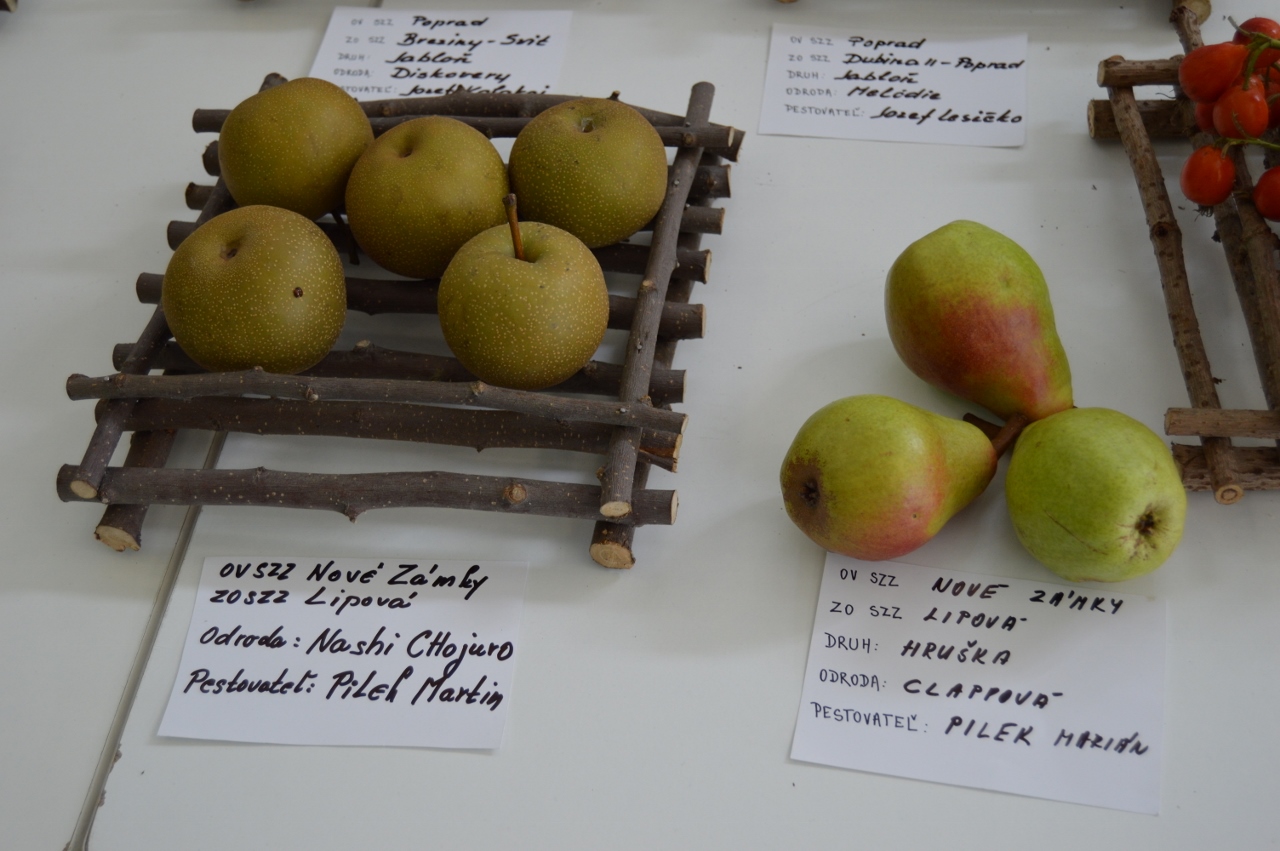 OV SZZ Poprad
ZO SZZ Breziny-Svit
DRUH: Jabloň
ODRODA: Diskovery
OV SZZ Poprad
ZO SZZ Dubina II-Poprad
DRUH: Jabloň
ODRODA: Melódie
PESTOVATEĽ: Jozef Lesičko
OV SZZ Nové Zámky
ZO SZZ Lipová
Odroda: Nashi CHojuro
Pestovateľ: Pilek Martin
OV SZZ NOVÉ ZÁMKY
ZO SZZ LIPOVÁ
DRUH: HRUŠKA
ODRODA: CLAPPOVÁ
PESTOVATEĽ: PILEK MARIÁN